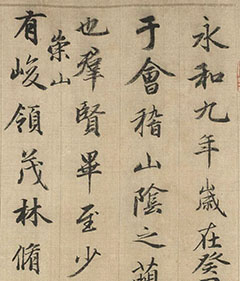 永和九年歲在癸
于會稽山陰之蘭
也羣賢畢至少
崇山
有峻領茂林脩